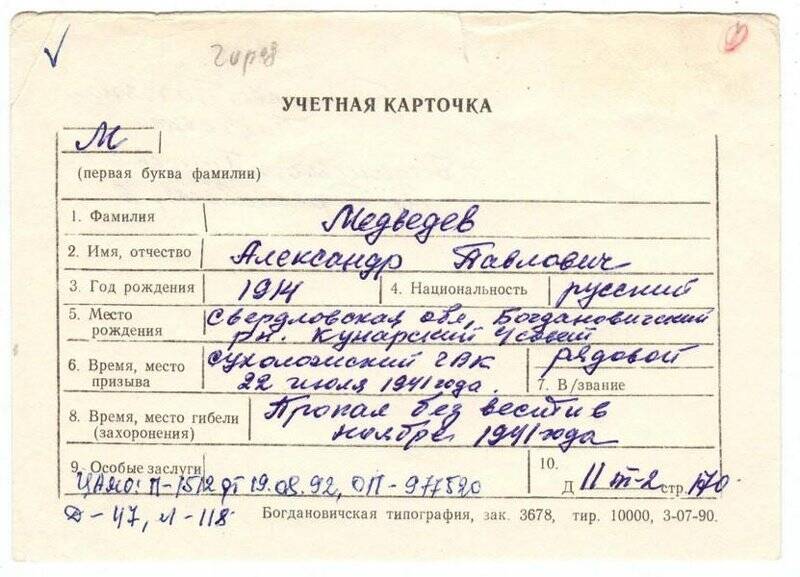 УЧЕТНАЯ КАРТОЧКА
М
(первая буква фамилии)
1. Фамилия Медведев
2. Имя, отчество Александр Павлович
3. Год рождения 1914 4. Национальность русский
5. Место рождения Свердловская обл, Богдановичский
рн. Кунарский
6. Время, место призыва Сухоложский рядовой
22 июля 1941 года. 7. В/звание
8. Время, место гибели Пропал без вести в
(захоронения) ноябре 1941 года
9. Особые заслуги 10.
ЦАМО: П-1512 от 19.08.92, ОП-977520 Д 11 т-2 стр. 170.
Д-47, л-118 Богдановичская типография, зак. 3678, тир. 10000, 3-07-90.